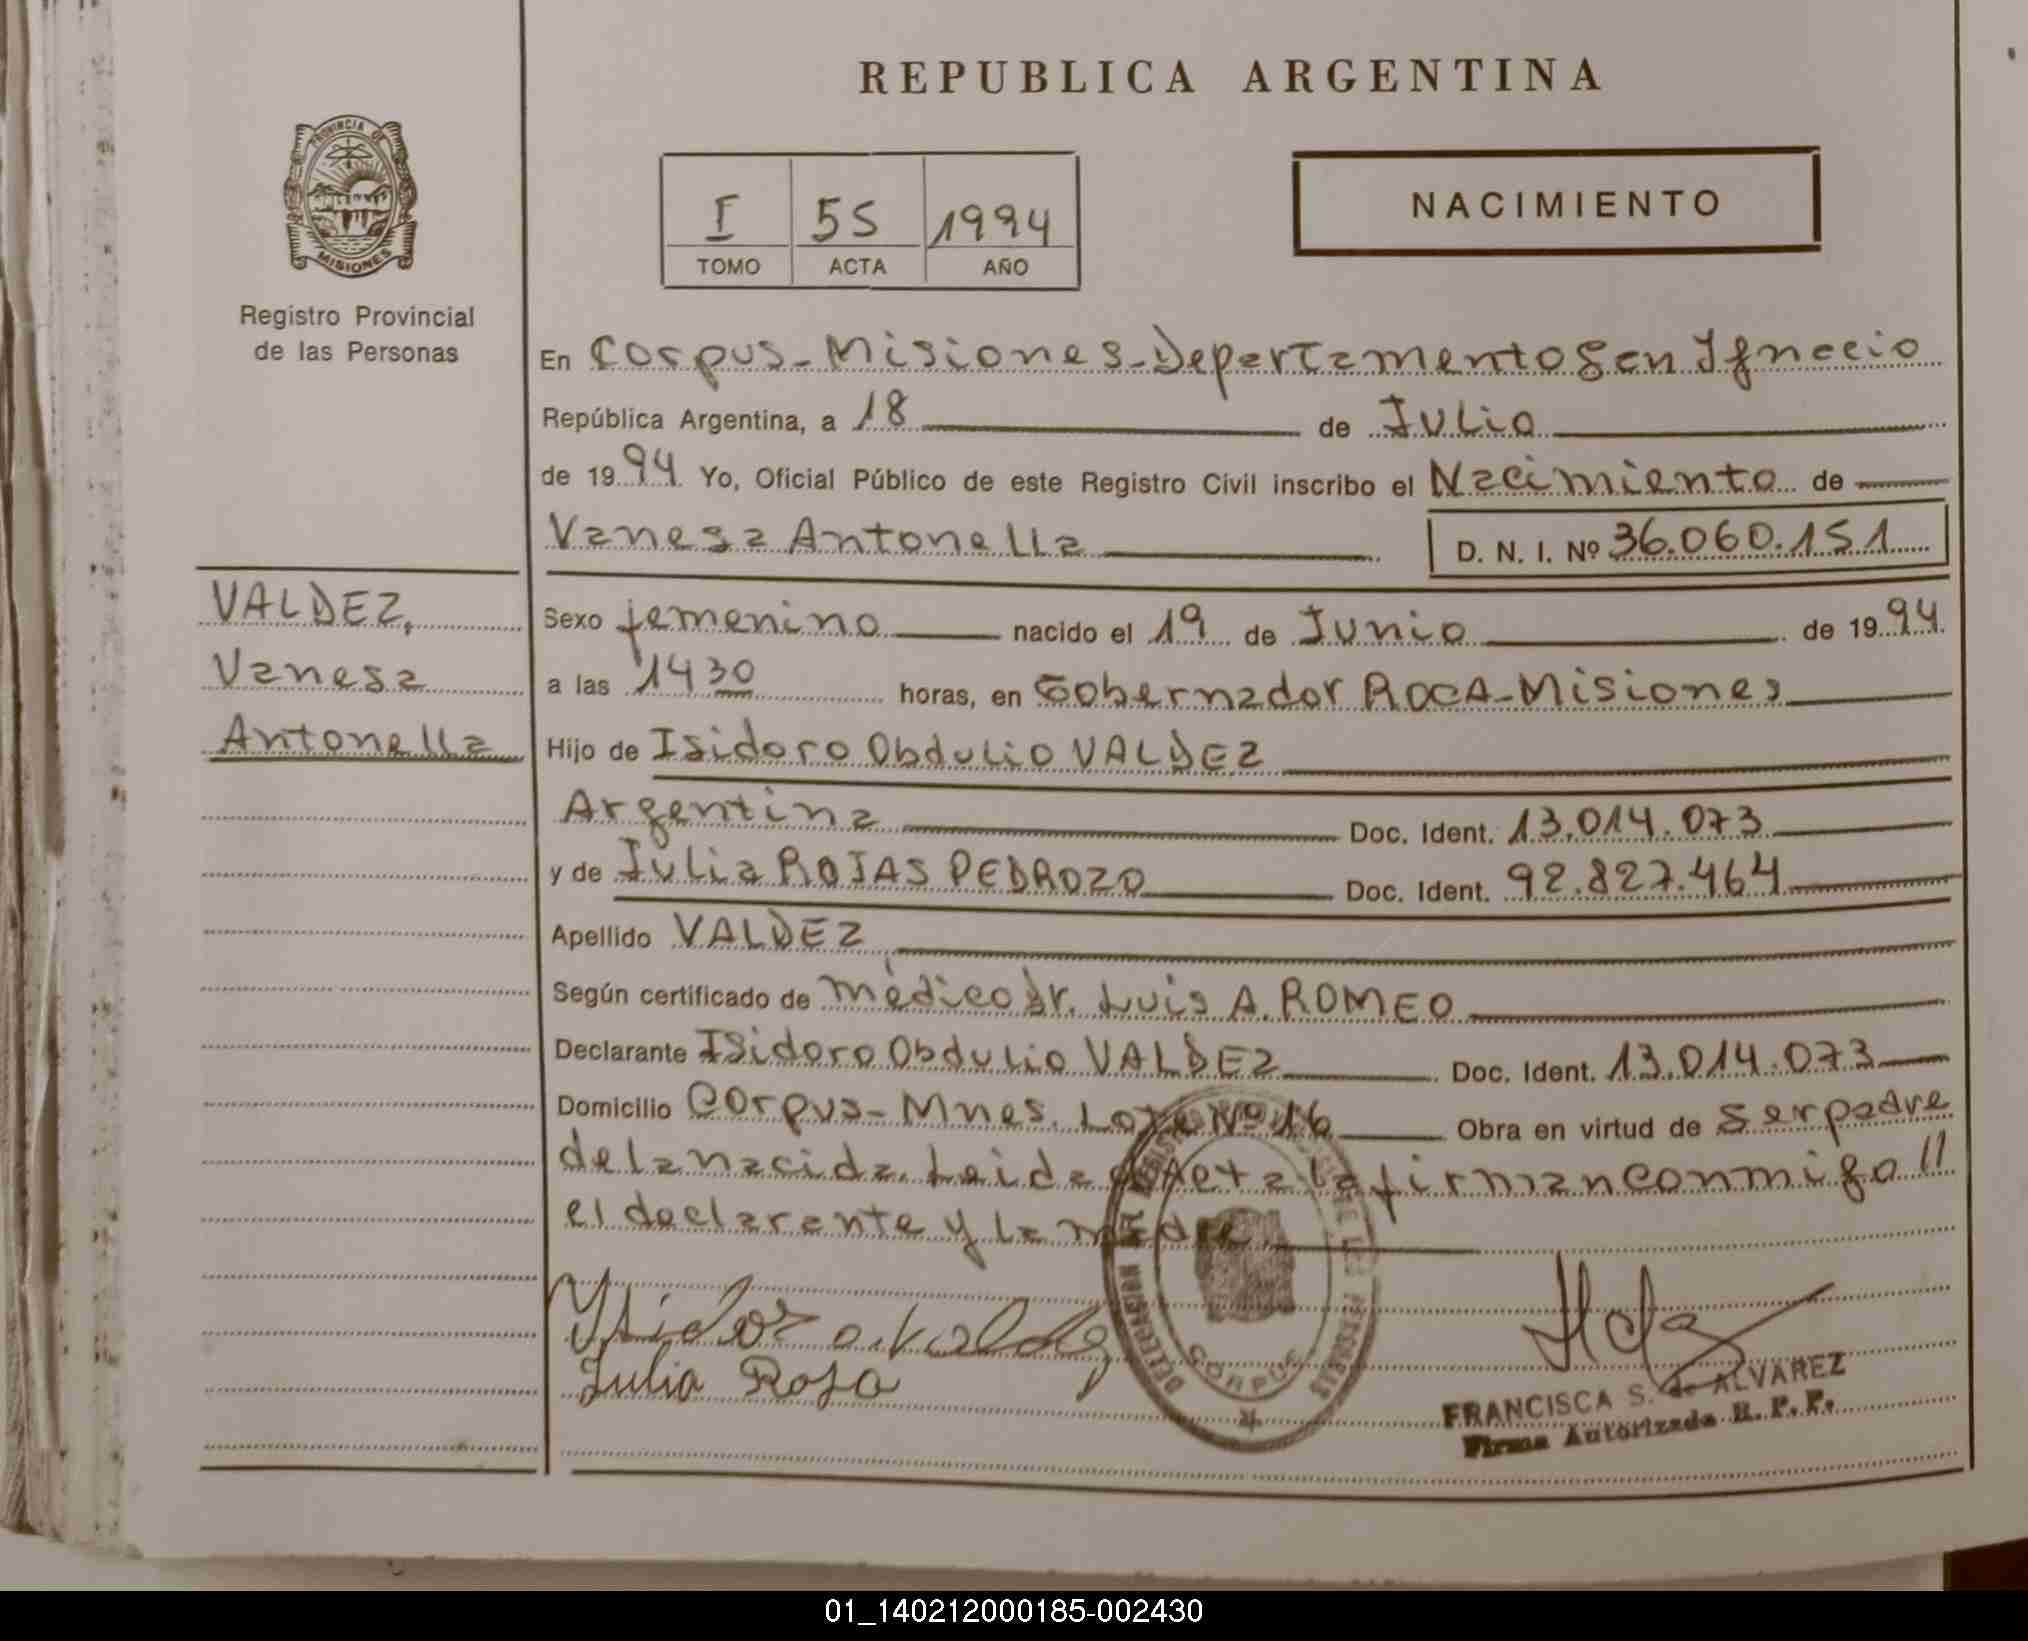 REPUBLICA ARGENTINA
PROVINCIA DE
MISIONES
Registro Provincial
de las Personas
I 55 1994
TOMO ACTA AÑO
NACIMIENTO
En Corpus-Misiones-Departamento San Ignacio
República Argentina, a 18 de Julio
de 1994 Yo, Oficial Público de este Registro Civil inscribo el Nacimiento de
Vanesa Antonella D. N. I. Nº 36.060.151
VALDEZ,
Vanesa
Antonella
Sexo femenino nacido el 19 de Junio de 1994
a las 1430 horas, en Gobernador ROCA-Misiones
Hijo de Isidoro Obdulio VALDEZ
Argentina Doc. Ident. 13.014.073
y de Julia ROJAS PEDROZO Doc. Ident. 92.827.464
Apellido VALDEZ
Según certificado de médico Dr. Luis A. ROMEO
Declarante Isidoro Obdulio VALDEZ Doc. Ident. 13.014.073
Domicilio Corpus-Mnes. Lote Nº 16 Obra en virtud de ser padre
de la nacida. Leida el Acta la firman conmigo //
el declarante y la madre.
Julia Roja
CORPUS
FRANCISCA S. de ALVAREZ
Firma Autorizada R. P. P.
01_140212000185-002430